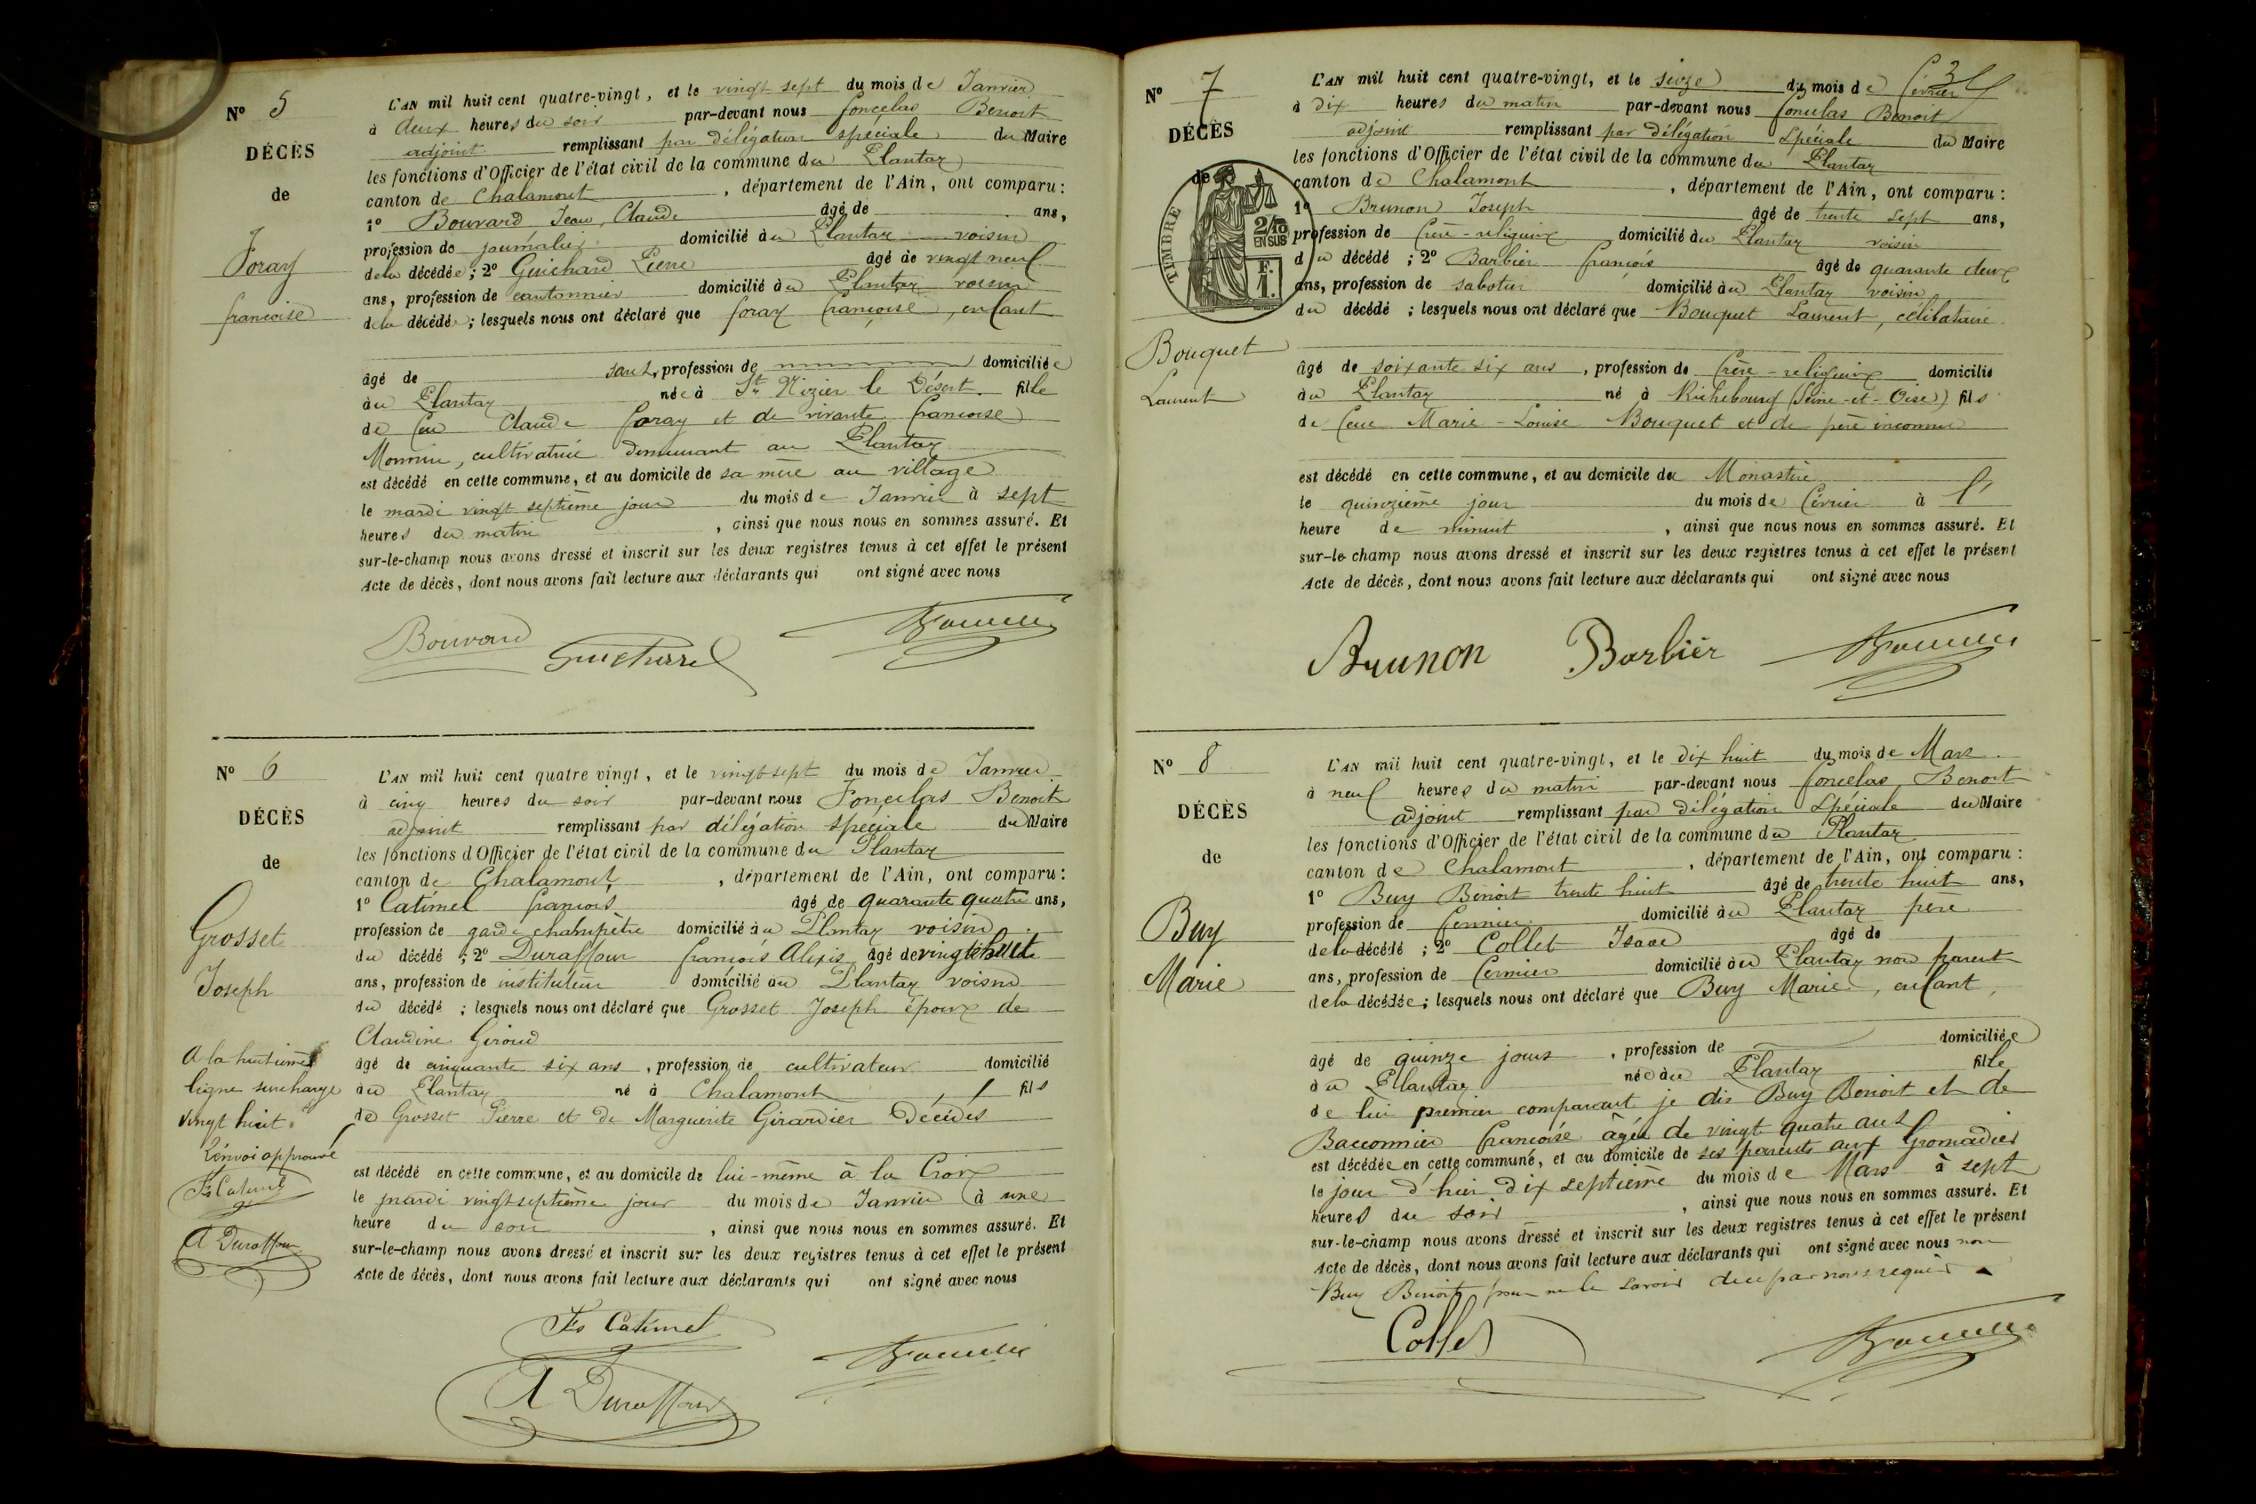 Nº 5
DÉCÈS
de
Foray
françoise
L'AN mil huit cent quatre-vingt, et le vingt sept du mois de Janvier
à deux heures du soir par-devant nous foncelas Benoit
adjoint remplissant par délégation spéciale du Maire
les fonctions d'Officier de l'état civil de la commune du Plantay
canton de Chalamont, département de l'Ain, ont comparu :
1º Bouvard Jean Claude âgé de ans,
profession de journalier domicilié au Plantay voisin
de la décédée ; 2º Guichard Pierre âgé de vingt neuf
ans, profession de cantonnier domicilié au Plantay voisin
de la décédée ; lesquels nous ont déclaré que foray françoise, enfant
âgé de sans, profession de domiciliée
au Plantay née à St Nizier le Désert fille
de feu Claude foray et de vivante françoise
Monnin, cultivatrice demeurant au Plantay
est décédé en cette commune, et au domicile de sa mère au village
le mardi vingt septième jour du mois de Janvier à sept
heures du matin, ainsi que nous nous en sommes assuré. Et
sur-le-champ nous avons dressé et inscrit sur les deux registres tenus à cet effet le présent
Acte de décès, dont nous avons fait lecture aux déclarants qui ont signé avec nous
Bouvard
Nº 6
DÉCÈS
de
Grosset
Joseph
A la huitième
ligne surcharge
vingt huit.
Renvoi approuvé
Fs Catimel
A Duraffour
L'AN mil huit cent quatre vingt, et le vingt-sept du mois de Janvier
à cinq heures du soir par-devant nous Foncelas Benoit
adjoint remplissant par délégation spéciale du Maire
les fonctions d'Officier de l'état civil de la commune du Plantay
canton de Chalamont, département de l'Ain, ont comparu :
1º Catimel françois âgé de quarante quatre ans,
profession de garde champêtre domicilié au Plantay voisin
du décédé ; 2º Duraffour françois Alexis âgé de vingt huit
ans, profession de instituteur domicilié au Plantay voisin
du décédé ; lesquels nous ont déclaré que Grosset Joseph époux de
Claudine Giroud
âgé de cinquante six ans, profession de cultivateur domicilié
au Plantay né à Chalamont, fils
de Grosset Pierre et de Marguerite Girardier Décédés
est décédé en cette commune, et au domicile de lui-même à la Croix
le mardi vingt septième jour du mois de Janvier à une
heure du soir, ainsi que nous nous en sommes assuré. Et
sur-le-champ nous avons dressé et inscrit sur les deux registres tenus à cet effet le présent
Acte de décès, dont nous avons fait lecture aux déclarants qui ont signé avec nous
Fs Catimel
A Duraffour
3
Nº 7
DÉCÈS
de
TIMBRE
2/10
EN SUS
F.
1.
Bouquet
Laurent
L'AN mil huit cent quatre-vingt, et le seize du mois de février
à dix heures du matin par-devant nous foncelas Benoit
adjoint remplissant par délégation spéciale du Maire
les fonctions d'Officier de l'état civil de la commune du Plantay
canton de Chalamont, département de l'Ain, ont comparu :
1º Brunon Joseph âgé de trente sept ans,
profession de frère-religieux domicilié au Plantay voisin
du décédé ; 2º Barbier françois âgé de quarante deux
ans, profession de sabotier domicilié au Plantay voisin
du décédé ; lesquels nous ont déclaré que Bouquet Laurent, célibataire
âgé de soixante six ans, profession de frère-religieux domicilié
au Plantay né à Richebourg (Seine-et-Oise) fils
de feue Marie-Louise Bouquet et de père inconnu
est décédé en cette commune, et au domicile du Monastère
le quinzième jour du mois de février à l'
heure de minuit, ainsi que nous nous en sommes assuré. Et
sur-le-champ nous avons dressé et inscrit sur les deux registres tenus à cet effet le présent
Acte de décès, dont nous avons fait lecture aux déclarants qui ont signé avec nous
Brunon Barbier
Nº 8
DÉCÈS
de
Buy
Marie
L'AN mil huit cent quatre-vingt, et le dix huit du mois de Mars
à neuf heures du matin par-devant nous foncelas Benoit
adjoint remplissant par délégation spéciale du Maire
les fonctions d'Officier de l'état civil de la commune du Plantay
canton de Chalamont, département de l'Ain, ont comparu :
1º Buy Benoit trente huit âgé de trente huit ans,
profession de fermier domicilié au Plantay père
de la décédé ; 2º Collet Isaac âgé de
ans, profession de fermier domicilié au Plantay non parent
de la décédée ; lesquels nous ont déclaré que Buy Marie, enfant,
âgé de quinze jours, profession de domiciliée
au Plantay née au Plantay fille
de lui premier comparant je dis Buy Benoit et de
Baconnier françoise âgée de vingt quatre ans
est décédée en cette commune, et au domicile de ses parents aux Gromadier
le jour d'hier dix septième du mois de Mars à sept
heures du soir, ainsi que nous nous en sommes assuré. Et
sur-le-champ nous avons dressé et inscrit sur les deux registres tenus à cet effet le présent
Acte de décès, dont nous avons fait lecture aux déclarants qui ont signé avec nous non
Buy Benoit pour ne le savoir de ce par nous requis
Collet